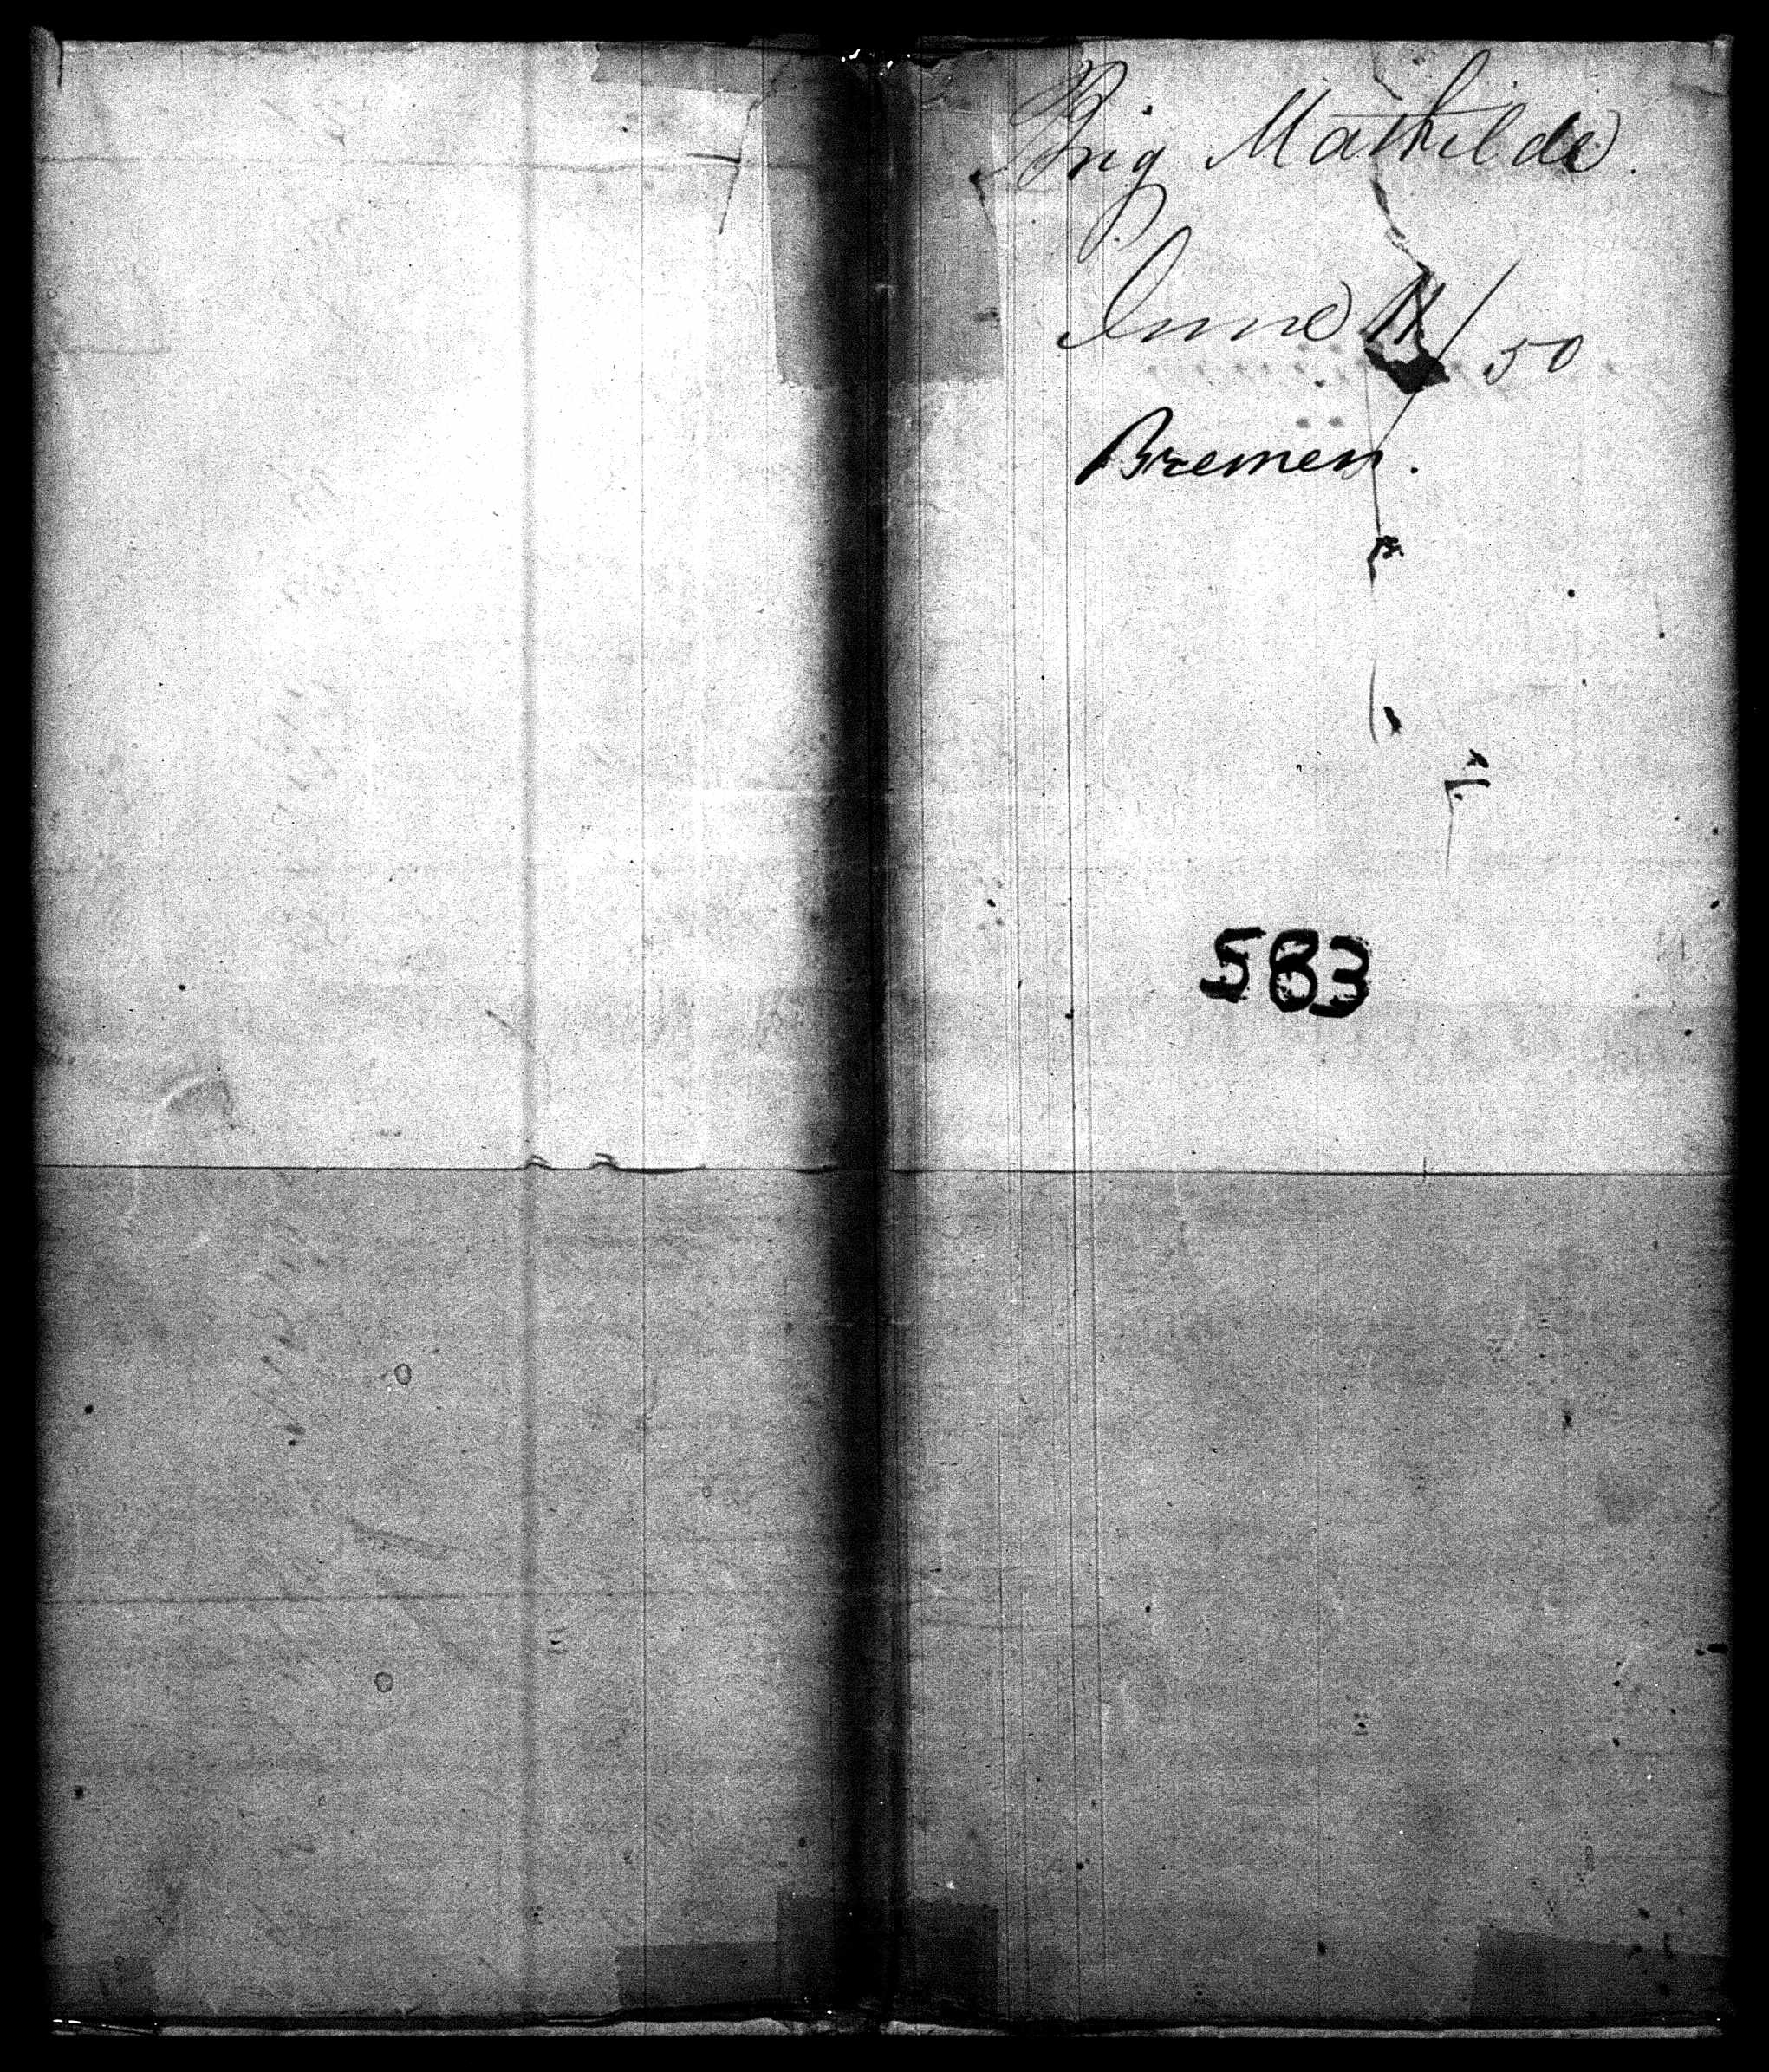 Brig Mathilde.
June 11/50
Bremen.
583